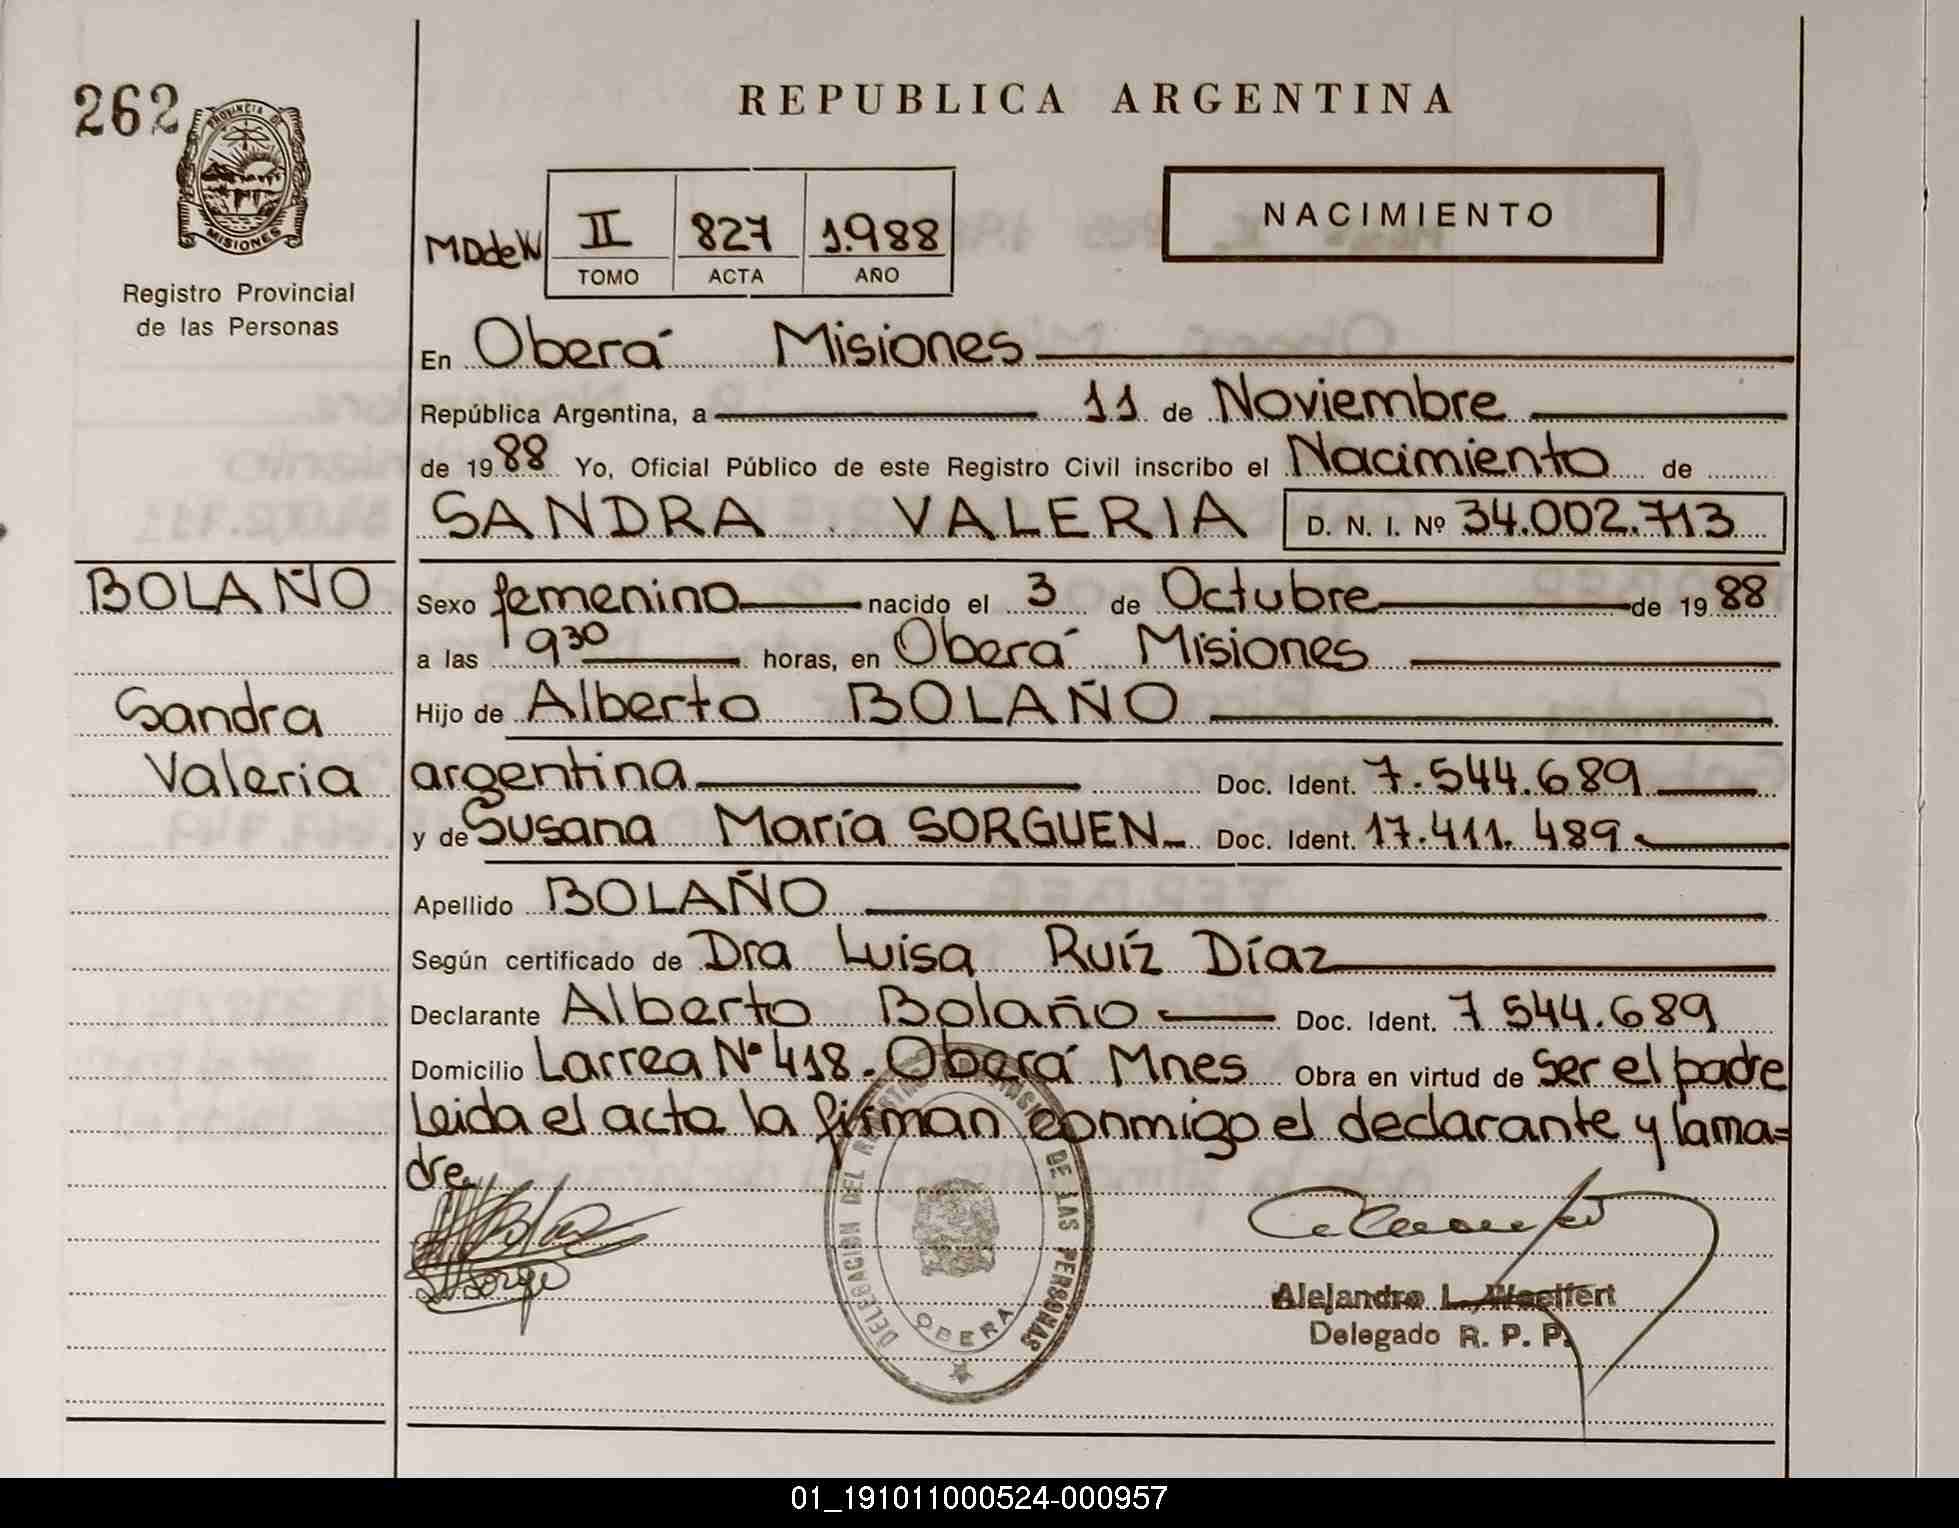 262
PROVINCIA DE
MISIONES
Registro Provincial
de las Personas
REPUBLICA ARGENTINA
MDdeW
II 827 1.988
TOMO ACTA AÑO
NACIMIENTO
En Oberá Misiones
República Argentina, a 11 de Noviembre
de 1988 Yo, Oficial Público de este Registro Civil inscribo el Nacimiento de
SANDRA VALERIA D. N. I. Nº 34.002.713
BOLAÑO
Sandra
Valeria
Sexo femenino nacido el 3 de Octubre de 1988
a las 9 30 horas, en Oberá Misiones
Hijo de Alberto BOLAÑO
argentina Doc. Ident. 7.544.689
y de Susana María SORGUEN Doc. Ident. 17.411.489
Apellido BOLAÑO
Según certificado de Dra Luisa Ruíz Díaz
Declarante Alberto Bolaño Doc. Ident. 7 544.689
Domicilio Larrea Nº 418. Oberá Mnes Obra en virtud de ser el padre
Leida el acta la firman conmigo el declarante y la ma=
dre
DELEGACION DEL DE LAS PERSONAS
OBERA
Alejandro L. Woelfert
Delegado R. P. P.
01_191011000524-000957